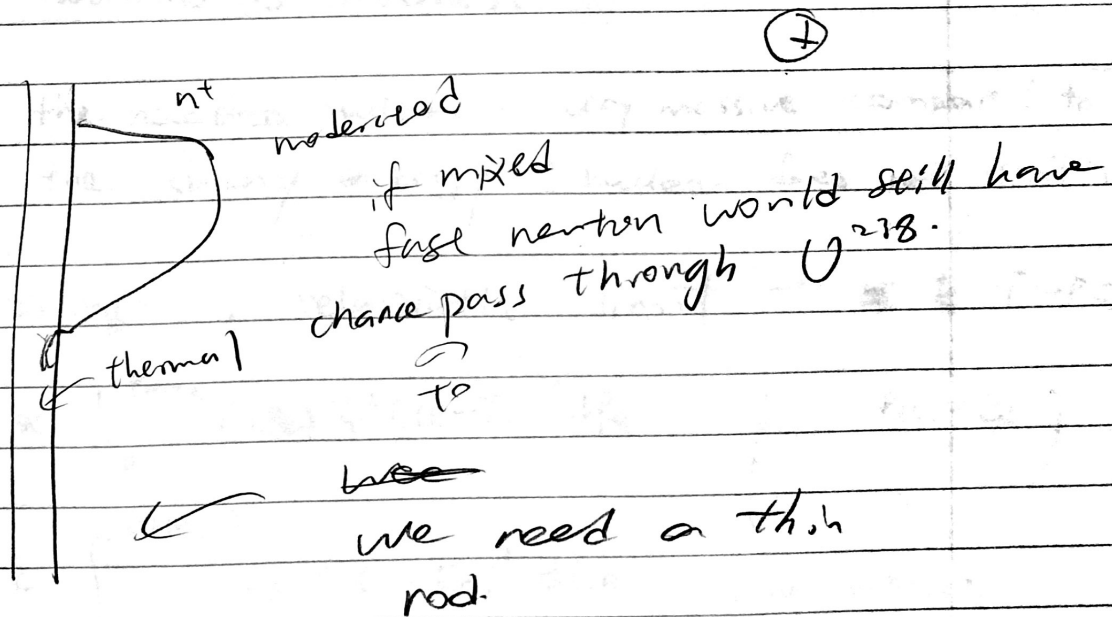 ①
n+
moderated
if mixed
fast neutron would still have
chance pass through U²³⁸.
thermal
to
we need a thin
rod.